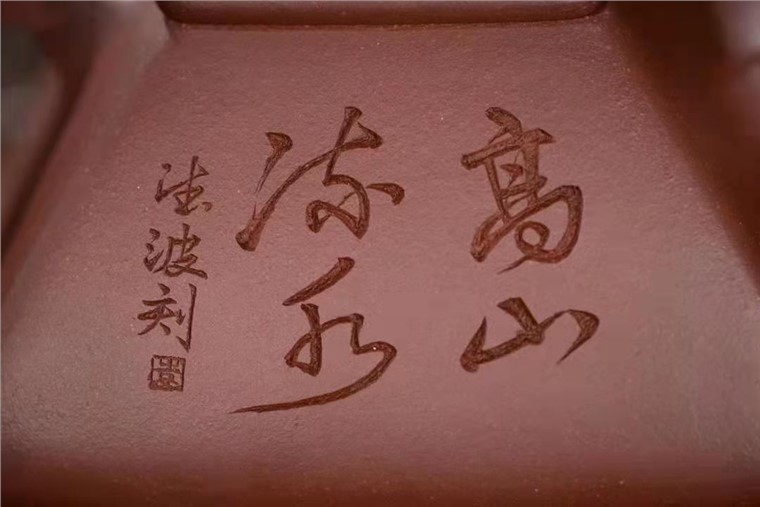 高山
流水
法波刻